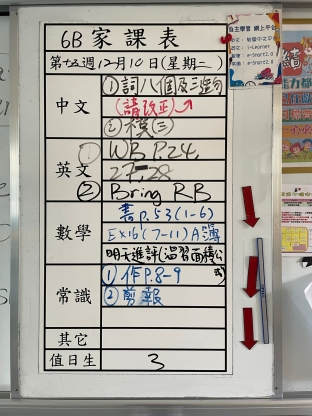 6B家課表
第十五週12月10日(星期二)
中文
①詞八個及三造句
(請改正)
②橫(三)
英文
① WB P.24,
27-28
② Bring RB
數學
書P.53(1-6)
Ex16(7-11)A簿
明天進評(溫習面積公式)
常識
①作P.8-9
②剪報
其它
值日生
3
自主學習 網上平台